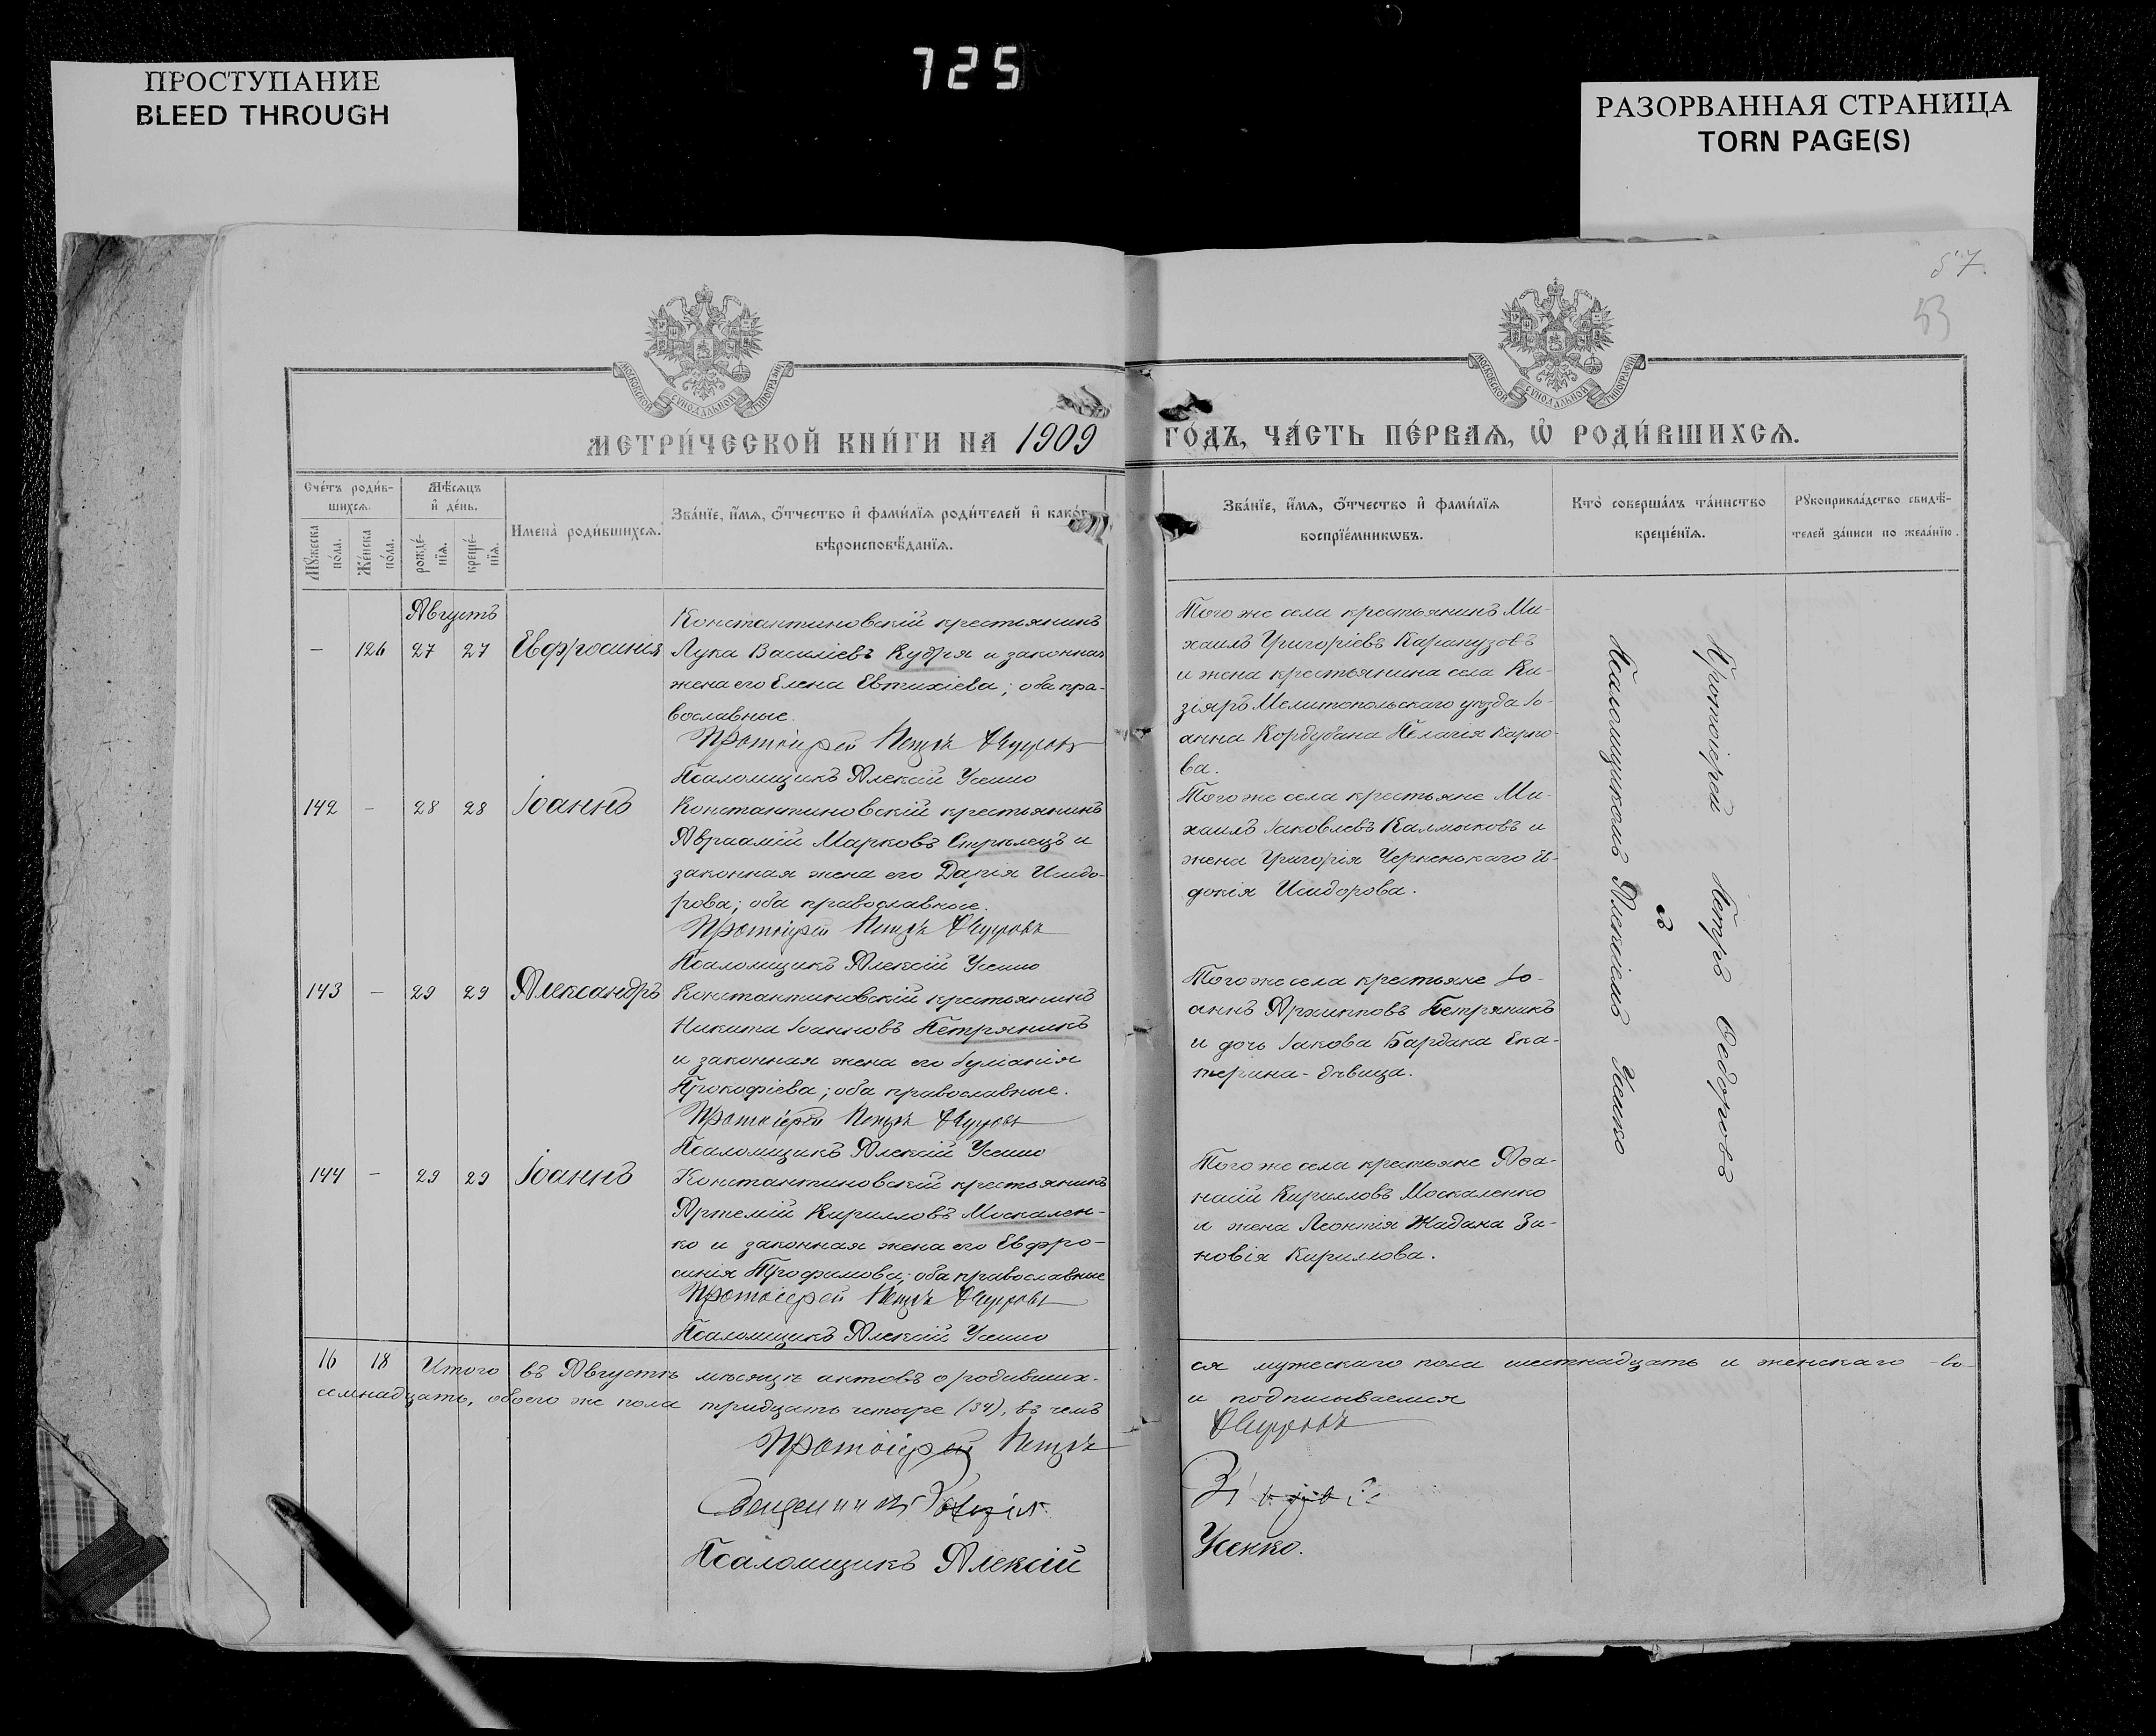 725
ПРОСТУПАНИЕ
BLEED THROUGH
РАЗОРВАННАЯ СТРАНИЦА
TORN PAGE(S)
57.
53
МОСКОВСКОЙ СѴНОДАЛЬНОЙ ТИПОГРАФІИ
МОСКОВСКОЙ СѴНОДАЛЬНОЙ ТИПОГРАФІИ
МЕТРИ́ЧЕСКОЙ КНИ́ГИ НА 1909 ГО́ДЪ, ЧА́СТЬ ПЕ́РВАѦ, Ѡ҆ РОДИ́ВШИХСѦ.
Сче́тъ роди́в-
шихсѧ.
Мѣ́сѧцъ
и҆ де́нь.
Мꙋ́жеска по́ла.
Же́нска по́ла.
рожде́-
нїѧ.
креще́-
нїѧ.
И҆мена̀ роди́вшихсѧ.
Зва́нїе, и҆́мѧ, ѻ҆́тчество и҆ фами́лїѧ роди́телей и҆ како́гѡ
вѣроисповѣ́данїѧ.
Зва́нїе, и҆́мѧ, ѻ҆́тчество и҆ фами́лїѧ
воспрїе́мникѡвъ.
Кто̀ соверша́лъ та́инство
креще́нїѧ.
Рꙋкоприкла́дство свидѣ́-
телей за́писи по жела́нїю.
Августъ
— 126 27 27 Евфросинія
Константиновскій крестьянинъ
Лука Василіевъ Кудря и законная
жена его Елена Евтихіева; оба пра-
вославные.
Протоіерей Петръ Ѳедоровъ
Псаломщикъ Алексій Усенко
Того же села крестьянинъ Ми-
хаилъ Григоріевъ Карапузовъ
и жена крестьянина села Ки-
зіяръ Мелитопольскаго уѣзда Іо-
анна Кордубана Пелагія Карпо-
ва.
142 — 28 28 Іоаннъ
Константиновскій крестьянинъ
Авраамій Марковъ Стрѣлецъ и
законная жена его Дарія Исидо-
рова; оба православные.
Протоіерей Петръ Ѳедоровъ
Псаломщикъ Алексій Усенко
Того же села крестьяне Ми-
хаилъ Іаковлевъ Калмыковъ и
жена Григорія Черненькаго
Исидорова.
143 — 29 29 Александръ
Константиновскій крестьянинъ
Никита Іоанновъ Петряникъ
и законная жена его Іуліанія
Прокофіева; оба православные.
Протоіерей Петръ Ѳедоровъ
Псаломщикъ Алексій Усенко
Того же села крестьяне Іо-
аннъ Архипповъ Петряникъ
и дочь Іакова Бардака Ека-
терина - дѣвица.
144 — 29 29 Іоаннъ
Константиновскій крестьянинъ
Артемій Кирилловъ Москален-
ко и законная жена его Евфро-
синія Трофимова; оба православные
Протоіерей Петръ Ѳедоровъ
Псаломщикъ Алексій Усенко
Того же села крестьяне Аѳа-
насій Кирилловъ Москаленко
и жена Леонтія Жадана Зи-
новія Кириллова.
Протоіерей Петръ Ѳедоровъ
съ
Псаломщикомъ Алексіемъ Усенко
16 18 Итого въ Августѣ мѣсяцѣ актовъ о родивших-
ся мужескаго пола шестнадцать и женскаго - во-
семнадцать, обоего же пола тридцать четыре (34), въ чемъ
и подписываемся
Протоіерей Петръ Ѳедоровъ
Священникъ
Псаломщикъ Алексій Усенко.